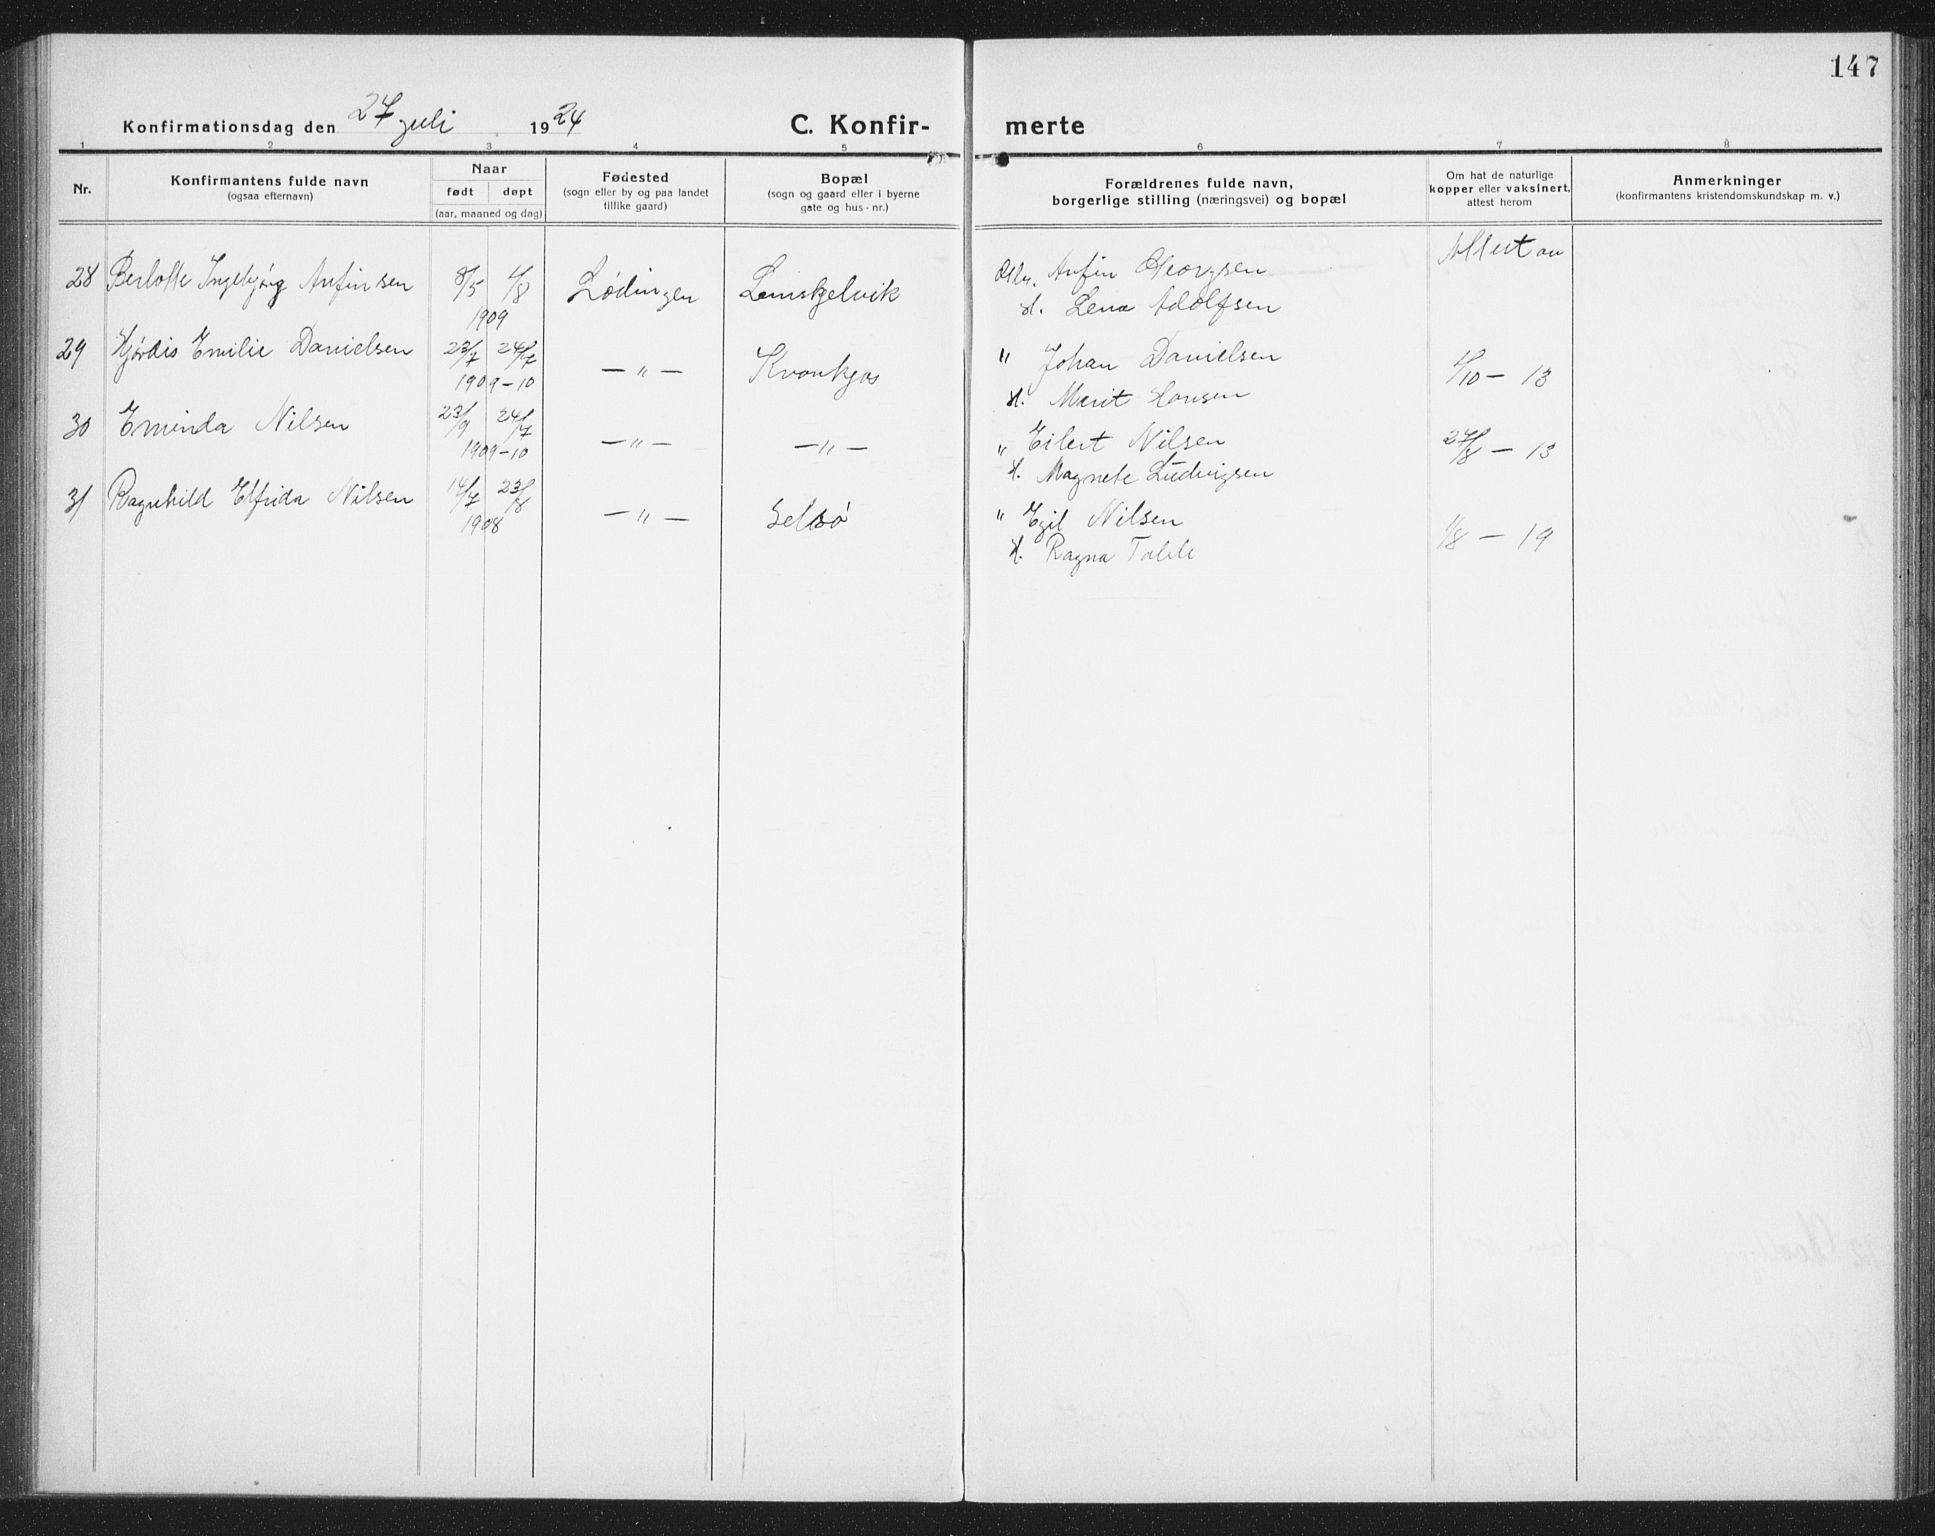 147
Konfirmationsdag den 27 juli 1924
C. Konfir- merte
1 2 3 4 5 6 7 8
Nr.
Konfirmantens fulde navn
(ogsaa efternavn)
Naar
født døpt
(aar, maaned og dag)
Fødested
(sogn eller by og paa landet
tillike gaard)
Bopæl
(sogn og gaard eller i byerne
gate og hus-nr.)
Forældrenes fulde navn,
borgerlige stilling (næringsvei) og bopæl
Om hat de naturlige
kopper eller vaksinert,
attest herom
Anmerkninger
(konfirmantens kristendomskundskap m. v.)
28 Berlotte Ingebjørg Anfinsen 8/5 1/8 Lødingen Anfin Georgsen
1909 H. Lena Adolfsen
29 Hjørdis Emilie Danielsen 23/7 24/7 — " — " Johan Danielsen
1909-10 H. Marit Hansen 1/10 — 13
30 Eminda Nilsen 23/9 24/7 — " — — " — " Eilert Nilsen 27/8 — 13
1909-10 H. Magnete Ludvigsen
31 Ragnhild Elfrida Nilsen 14/7 23/8 — " — Selsø " Egil Nilsen 1/8 — 19
1908 H. Ragna